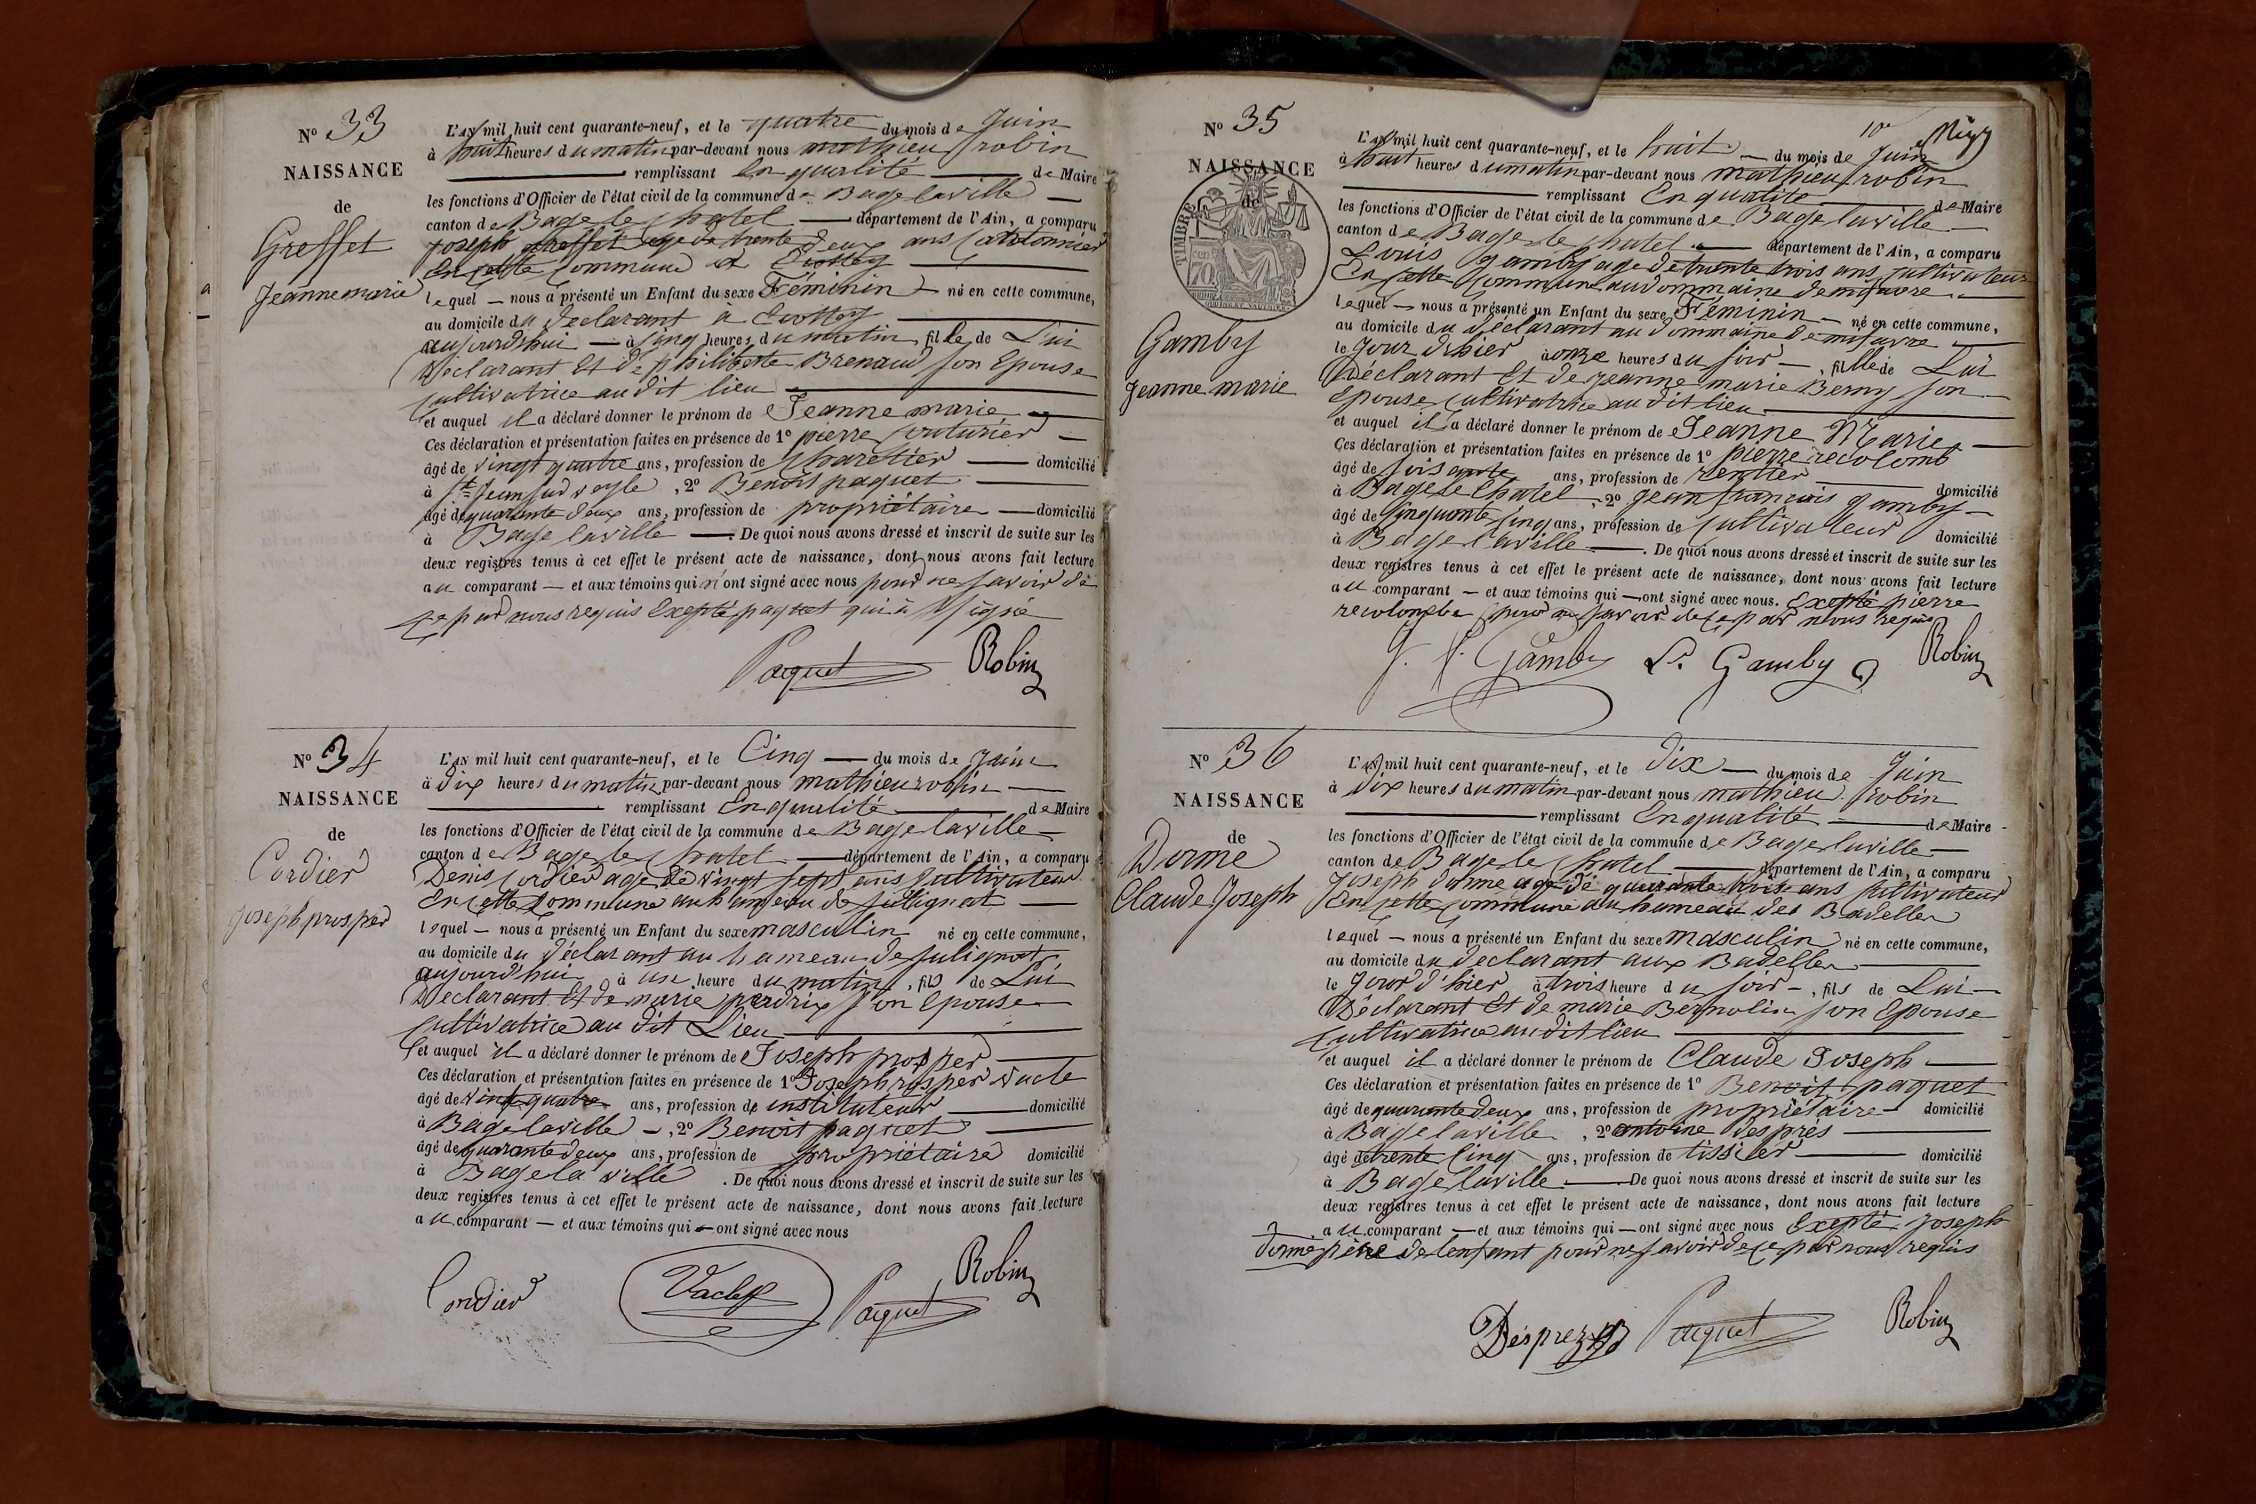 N° 33
NAISSANCE
de
Greffet
Jeanne marie
L'AN mil huit cent quarante-neuf, et le quatre du mois de Juin
à huit heures du matin par-devant nous mathieu robin
remplissant En qualité de Maire
les fonctions d'Officier de l'état civil de la commune de Bage laville
canton de Bage le chatel département de l'Ain, a comparu
joseph greffet age de trente deux ans Cantonnier
En cette Commune
lequel nous a présenté un Enfant du sexe Féminin né en cette commune,
au domicile du déclarant à
aujourd'hui à cinq heures du matin fille de Lui
Déclarant Et de philiberte Brenaud son Epouse
Cultivatrice au dit lieu
et auquel il a déclaré donner le prénom de Jeanne marie
Ces déclaration et présentation faites en présence de 1° pierre couturier
âgé de vingt quatre ans, profession de charetier domicilié
à St Jean sud veyle, 2° Benoit paquet
âgé de quarante deux ans, profession de propriétaire domicilié
à Bage laville. De quoi nous avons dressé et inscrit de suite sur les
deux registres tenus à cet effet le présent acte de naissance, dont nous avons fait lecture
au comparant et aux témoins qui n'ont signé avec nous pour ne savoir de
ce par nous requis Exepté paquet qui à signé
Paquet Robin
N° 34
NAISSANCE
de
Cordier
joseph prosper
L'AN mil huit cent quarante-neuf, et le Cinq du mois de Juin
à dix heures du matin par-devant nous mathieu robin
remplissant En qualité de Maire
les fonctions d'Officier de l'état civil de la commune de Bage laville
canton de Bage le chatel département de l'Ain, a comparu
Denis Cordier age de vingt sept ans Cultivateur
En cette Commune au hameau de
lequel nous a présenté un Enfant du sexe masculin né en cette commune,
au domicile du déclarant au hameau de
aujourd'hui à une heure du matin, fils de Lui
Déclarant Et de marie perdrix son Epouse
Cultivatrice au dit Lieu
et auquel il a déclaré donner le prénom de Joseph prosper
Ces déclaration et présentation faites en présence de 1° Joseph prosper vacle
âgé de vingt quatre ans, profession de instituteur domicilié
à Bage laville, 2° Benoit paquet
âgé de quarante deux ans, profession de propriétaire domicilié
à Bage la ville. De quoi nous avons dressé et inscrit de suite sur les
deux registres tenus à cet effet le présent acte de naissance, dont nous avons fait lecture
au comparant et aux témoins qui ont signé avec nous
Cordier Vacle Paquet Robin
N° 35
NAISSANCE
de
TIMBRE
70
Gamby
Jeanne marie
10e
L'AN mil huit cent quarante-neuf, et le huit du mois de Juin
à huit heures du matin par-devant nous mathieu robin
remplissant En qualité de Maire
les fonctions d'Officier de l'état civil de la commune de Bage laville
canton de Bage le chatel département de l'Ain, a comparu
Louis gamby age de trente trois ans, cultivateur
En cette Commune au dommaine de
lequel nous a présenté un Enfant du sexe Féminin né en cette commune,
au domicile du déclarant au dommaine de
le Jour d'hier à onze heures du soir, fille de Lui
Déclarant Et de jeanne marie Berny son
Epouse Cultivatrice au dit lieu
et auquel il a déclaré donner le prénom de Jeanne Marie
Ces déclaration et présentation faites en présence de 1° pierre recolomb
âgé de soisante ans, profession de rentier domicilié
à Bage le Chatel, 2° jean francois gamby
âgé de cinquante cinq ans, profession de Cultivateur domicilié
à Bage laville. De quoi nous avons dressé et inscrit de suite sur les
deux registres tenus à cet effet le présent acte de naissance, dont nous avons fait lecture
au comparant et aux témoins qui ont signé avec nous. Exepté pierre
recolombe pour ne savoir de ce par nous requis
J. f. Gamby L. Gamby Robin
N° 36
NAISSANCE
de
Dorme
Claude Joseph
L'AN mil huit cent quarante-neuf, et le dix du mois de Juin
à Dix heures du matin par-devant nous mathieu robin
remplissant En qualité de Maire
les fonctions d'Officier de l'état civil de la commune de Bage laville
canton de Bage le chatel département de l'Ain, a comparu
Joseph dorme age de quarante trois ans Cultivateur
En cette Commune au hameau des Badelles
lequel nous a présenté un Enfant du sexe masculin né en cette commune,
au domicile du déclarant aux Badelles
le Jour d'hier à trois heure du soir, fils de Lui
Déclarant Et de marie Bernolin son Epouse
Cultivatrice au dit lieu
et auquel il a déclaré donner le prénom de Claude Joseph
Ces déclaration et présentation faites en présence de 1° Benoit paquet
âgé de quarante deux ans, profession de propriétaire domicilié
à Bage laville, 2° antoine després
âgé de trente Cinq ans, profession de tissier domicilié
à Bage laville. De quoi nous avons dressé et inscrit de suite sur les
deux registres tenus à cet effet le présent acte de naissance, dont nous avons fait lecture
au comparant et aux témoins qui ont signé avec nous Exepté joseph
dorme père de lenfant pour ne savoir de ce par nous requis
Désprez Paquet Robin